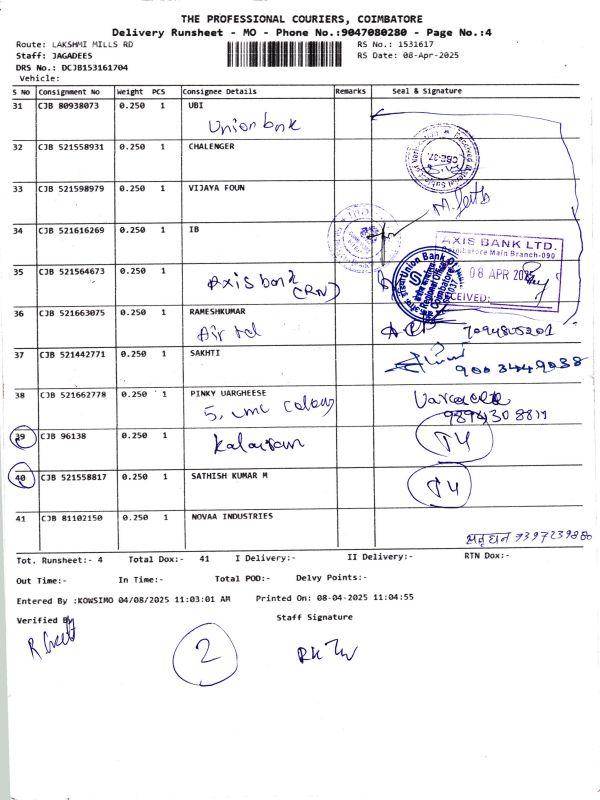 THE PROFESSIONAL COURIERS, COIMBATORE
Delivery Runsheet - MO - Phone No.:9047080280 - Page No.:4
Route: LAKSHMI MILLS RD
RS No.: 1531617
Staff: JAGADEES
RS Date: 08-Apr-2025
DRS No.: DCJB153161704
Vehicle:
S No Consignment No Weight PCS Consignee Details Remarks Seal & Signature
31 CJB 80938073 0.250 1 UBI
Union bank
32 CJB 521558931 0.250 1 CHALENGER
CBE-37
33 CJB 521598979 0.250 1 VIJAYA FOUN
34 CJB 521616269 0.250 1 IB
AXIS BANK LTD.
Coimbatore Main Branch-090
35 CJB 521564673 0.250 1
Axis bank
08 APR 2025
Union Bank Of
Regional Office
Coimbatore
RECEIVED:
36 CJB 521663075 0.250 1 RAMESHKUMAR
Airtel
37 CJB 521442771 0.250 1 SAKHTI
9003449038
38 CJB 521662778 0.250 1 PINKY UARGHEESE
5,
39 CJB 96138 0.250 1
40 CJB 521558817 0.250 1 SATHISH KUMAR M
41 CJB 81102150 0.250 1 NOVAA INDUSTRIES
Tot. Runsheet:- 4 Total Dox:- 41 I Delivery:- II Delivery:- RTN Dox:-
Out Time:- In Time:- Total POD:- Delvy Points:-
Entered By :KOWSIMO 04/08/2025 11:03:01 AM Printed On: 08-04-2025 11:04:55
Verified By
Staff Signature
2